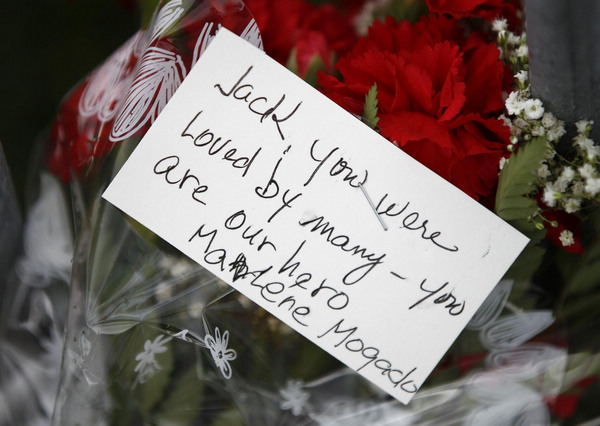 Jack, you were
Loved by many - you
are our hero
Marlene Mogado